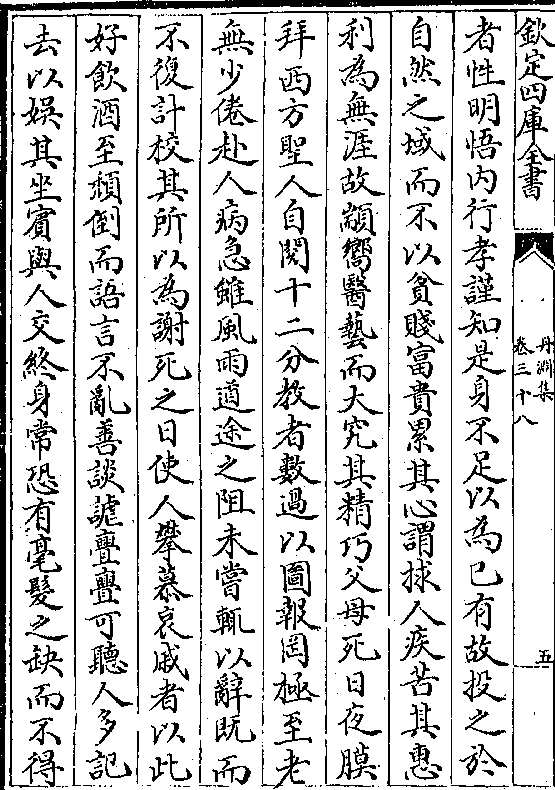 欽定四庫全書
丹淵集
卷三十八
五
者性明悟内行孝謹知是身不足以為已有故投之於
自然之域而不以貧賤富貴累其心謂捄人疾苦其惠
利為無涯故顓嚮醫藝而大究其精巧父母死日夜膜
拜西方聖人自閱十二分教者數過以圖報罔極至老
無少倦赴人病急雖風雨道途之阻未嘗輒以辭既而
不復計校其所以為謝死之日使人攀慕哀戚者以此
好飲酒至頽倒而語言不亂善談謔亹亹可聽人多記
去以娱其坐賓與人交終身常恐有毫髮之缺而不得